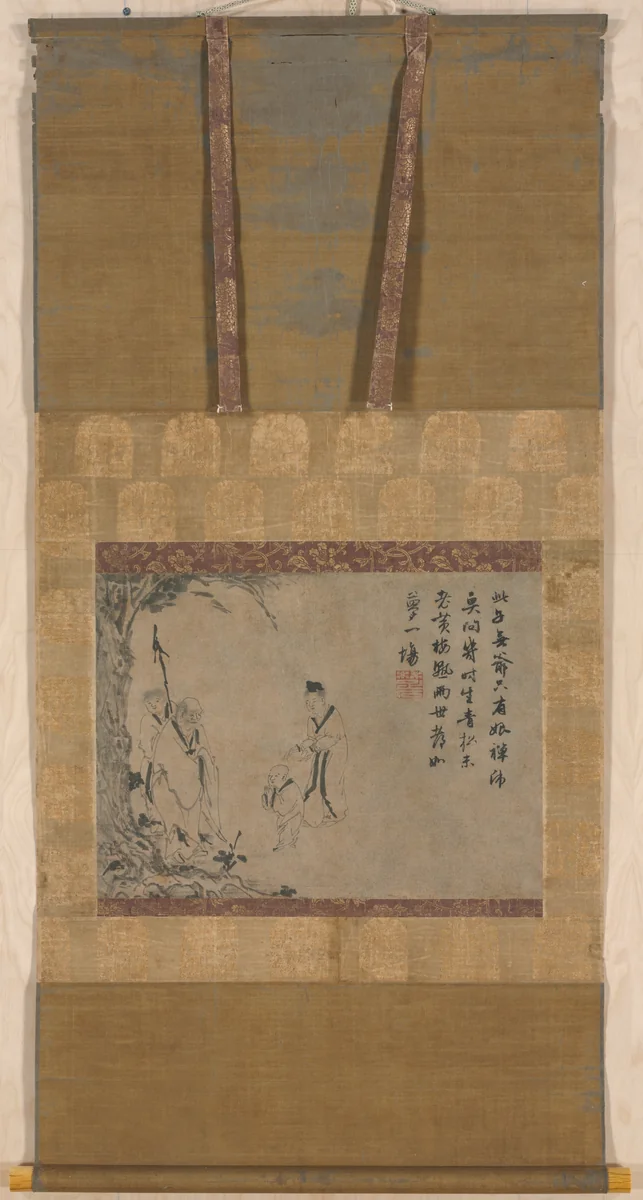 此子無爺只有娘禪師
莫問幾時生青松未
老黃梅熟兩世如
夢一場